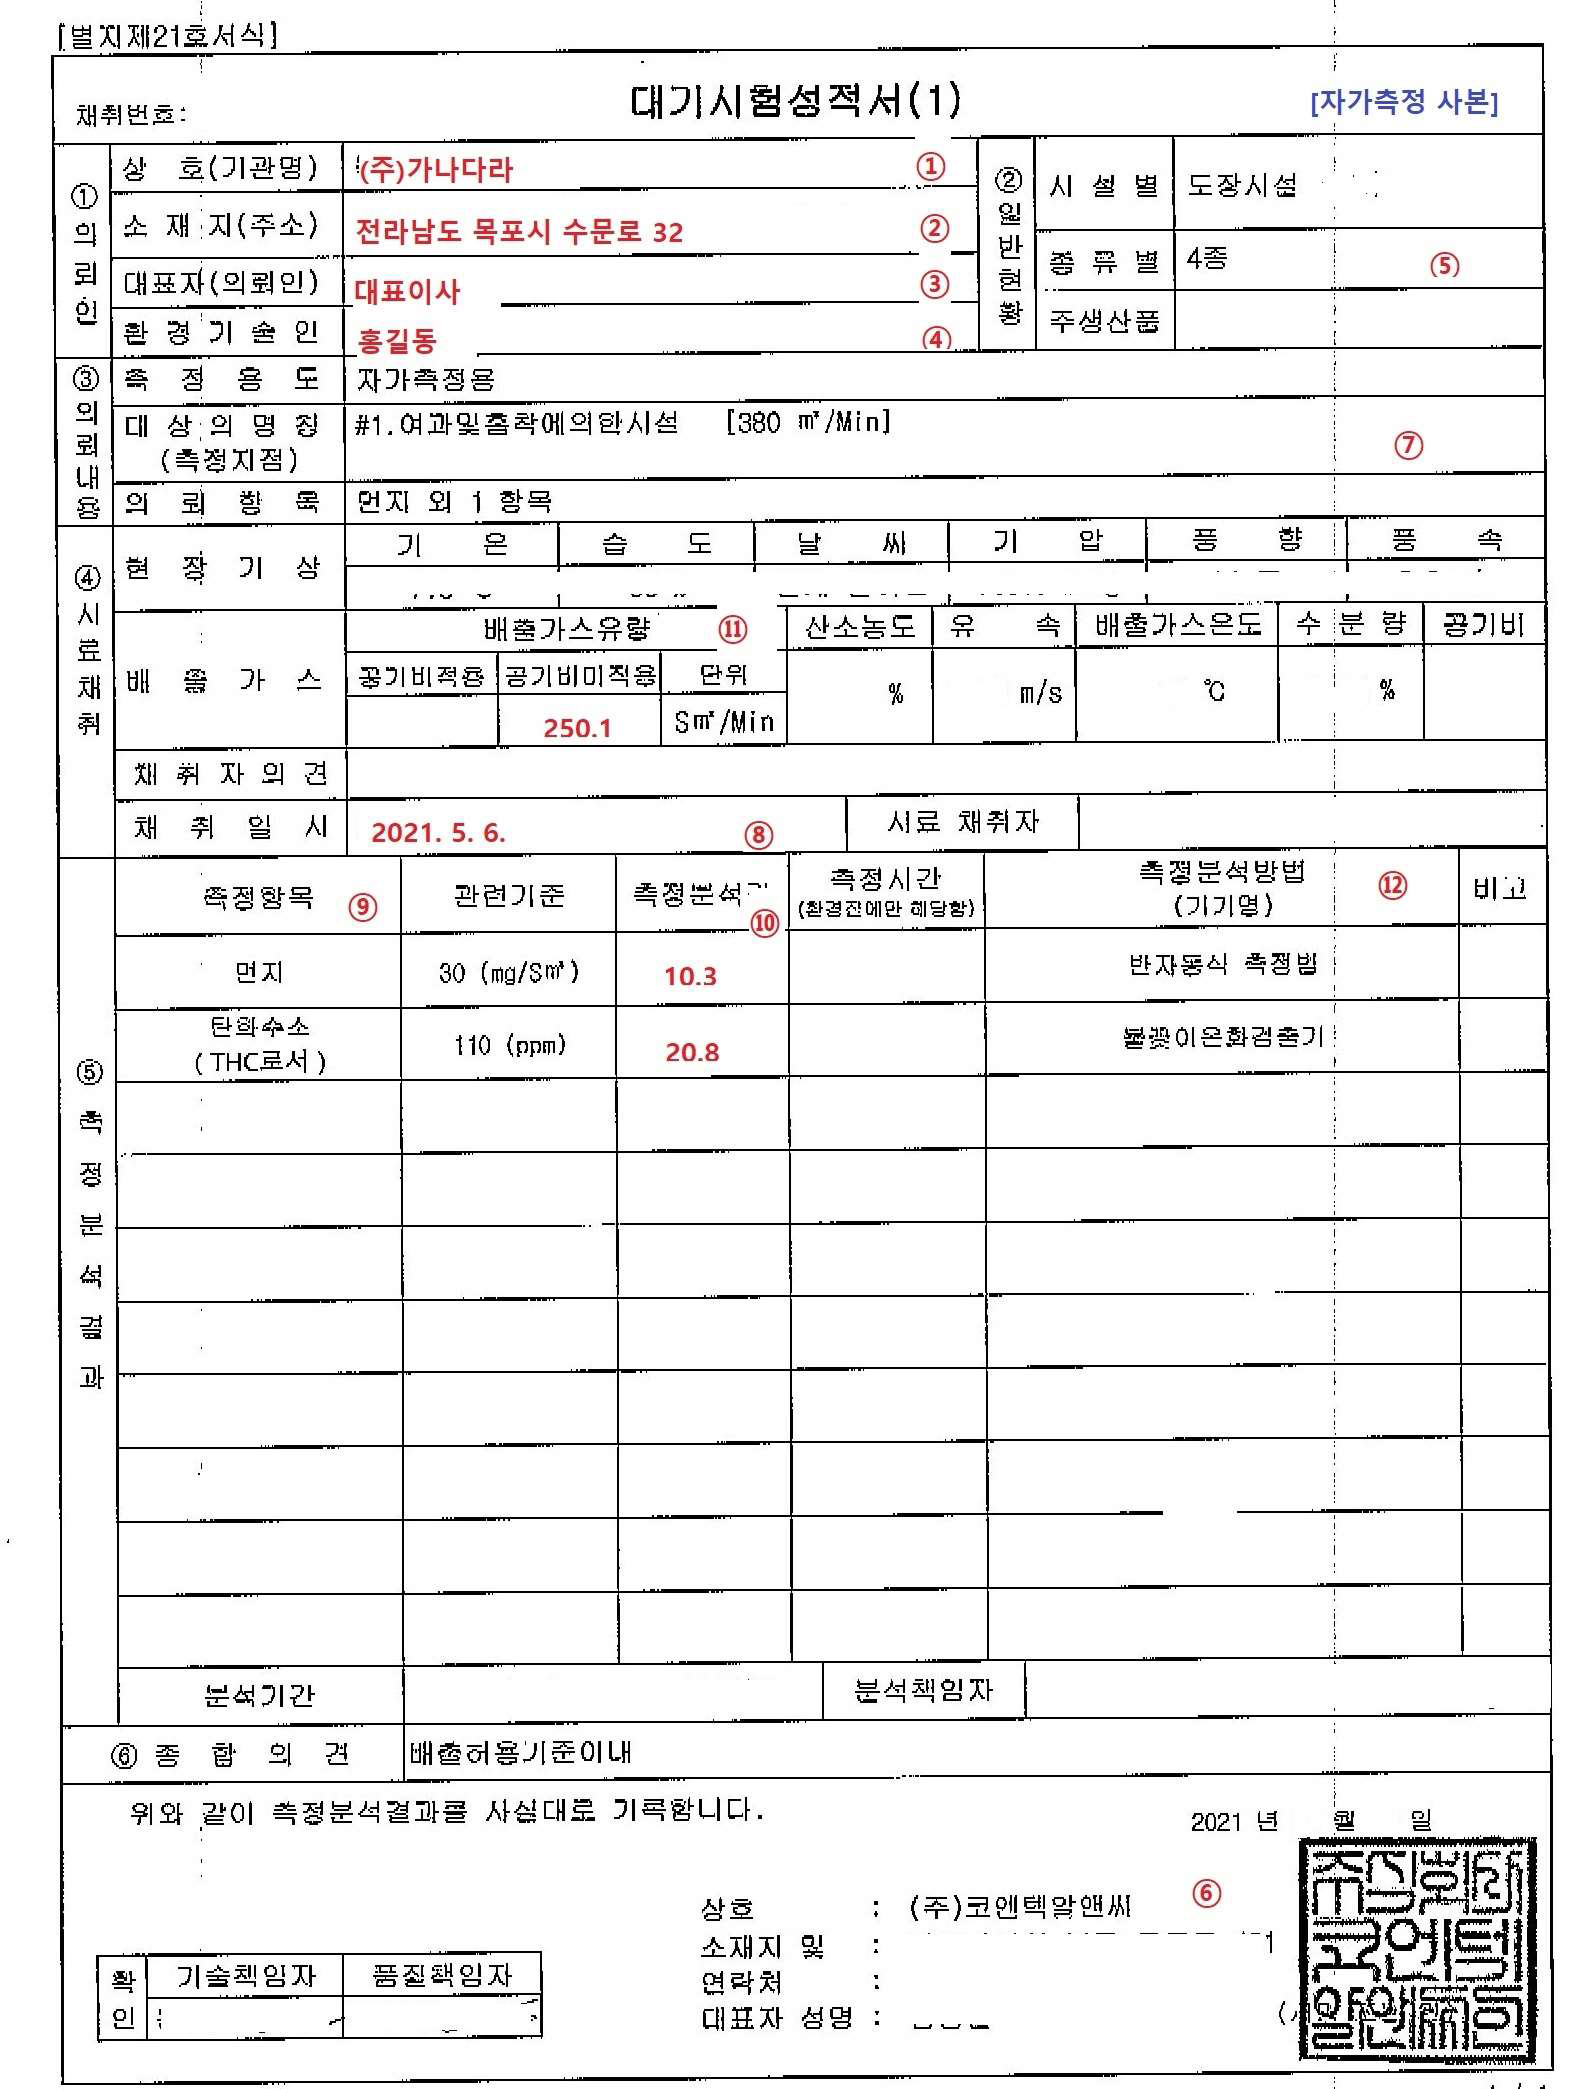 [별지제21호서식]
채취번호:
대기시험성적서(1)
[자가측정 사본]
① 의뢰인
상 호(기관명)
(주)가나다라 ①
소 재 지(주소)
전라남도 목포시 수문로 32 ②
대표자(의뢰인)
대표이사 ③
환 경 기 술 인
홍길동 ④
② 일반현황
시 설 별 도장시설
종 류 별 4종 ⑤
주생산품
③ 의뢰내용
측 정 용 도 자가측정용
대 상 의 명 칭 #1.여과및흡착에의한시설 [380 ㎥/Min]
(측정지점) ⑦
의 뢰 항 목 먼지 외 1 항목
④ 시료채취
현 장 기 상
기 온 습 도 날 씨 기 압 풍 향 풍 속
배 출 가 스
배출가스유량 ⑪ 산소농도 유 속 배출가스온도 수 분 량 공기비
공기비적용 공기비미적용 단위
250.1 S㎥/Min % m/s ℃ %
채 취 자 의 견
채 취 일 시 2021. 5. 6. ⑧ 시료 채취자
⑤ 측정분석결과
측정항목 ⑨ 관련기준 측정분석 ⑩ 측정시간 (환경진에만 해당함) 측정분석방법 (기기명) ⑫ 비고
먼지 30 (mg/S㎥) 10.3 반자동식 측정법
탄화수소 (THC로서) 110 (ppm) 20.8 불꽃이온화검출기
분석기간 분석책임자
⑥ 종 합 의 견 배출허용기준이내
위와 같이 측정분석결과를 사실대로 기록합니다.
2021 년 월 일
상호 : (주)코엔텍알앤씨 ⑥
소재지 및 :
연락처 :
대표자 성명 :
확인 기술책임자 품질책임자